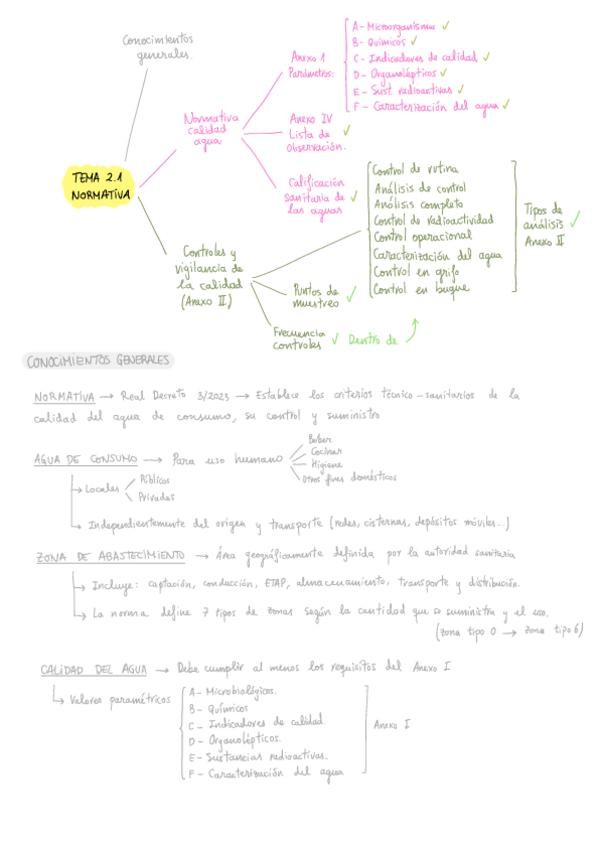 Conocimientos
generales.
TEMA 2.1
NORMATIVA
Normativa
calidad
agua
Anexo 1
Parámetros:
A- Microorganismos ✓
B- Químicos ✓
C - Indicadores de calidad ✓
D - Organolépticos ✓
E - Sust radioactivas ✓
F - Caracterización del agua ✓
Anexo IV
Lista de ✓
Observación.
Calificación
sanitaria de ✓
las aguas
Controles y
vigilancia de
la calidad
(Anexo II)
Control de rutina
Análisis de control
Análisis completo
Control de radioactividad
Control operacional
Caracterización del agua
Control en grifo
Control en buque
Tipos de
análisis ✓
Anexo II
Puntos de
muestreo ✓
Frecuencia
controles ✓ Dentro de
CONOCIMIENTOS GENERALES
NORMATIVA → Real Decreto 3/2023 → Establece los criterios técnico-sanitarios de la
calidad del agua de consumo, su control y suministro
AGUA DE CONSUMO → Para uso humano
Beber
Cocinar
Higiene
Otros fines domésticos
↳ Locales
Públicos
Privados
↳ Independientemente del origen y transporte (redes, cisternas, depósitos móviles...)
ZONA DE ABASTECIMIENTO → Área geográficamente definida por la autoridad sanitaria
↳ Incluye: captación, conducción, ETAP, almacenamiento, transporte y distribución.
↳ La norma define 7 tipos de zonas según la cantidad que se suministra y el uso.
(zona tipo 0 → zona tipo 6)
CALIDAD DEL AGUA → Debe cumplir al menos los requisitos del Anexo I
↳ Valores paramétricos
A- Microbiológicos.
B - Químicos
C - Indicadores de calidad.
D - Organolépticos.
E - Sustancias radioactivas.
F - Caracterización del agua
Anexo I